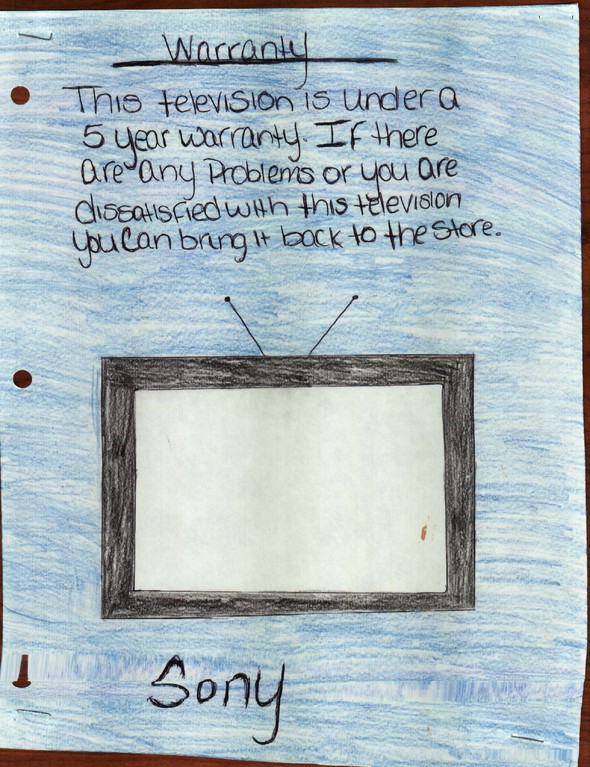 Warranty
This television is under a
5 year warranty. If there
are any Problems or you are
dissatisfied with this television
you can bring it back to the store.
Sony